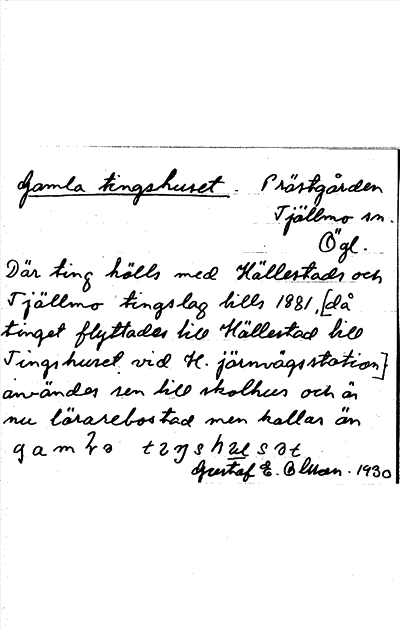 Gamla tingshuset. Prästgården
Tjällmo sn.
Ögl.
Där ting hölls med Hällestads och
Tjällmo tingslag tills 1881, [då
tinget flyttades till Hällestad till
Tingshuset vid H. järnvägsstation]
användes sen till skolhus och är
nu lärarebostad men kallas än
Gustaf E. 1930